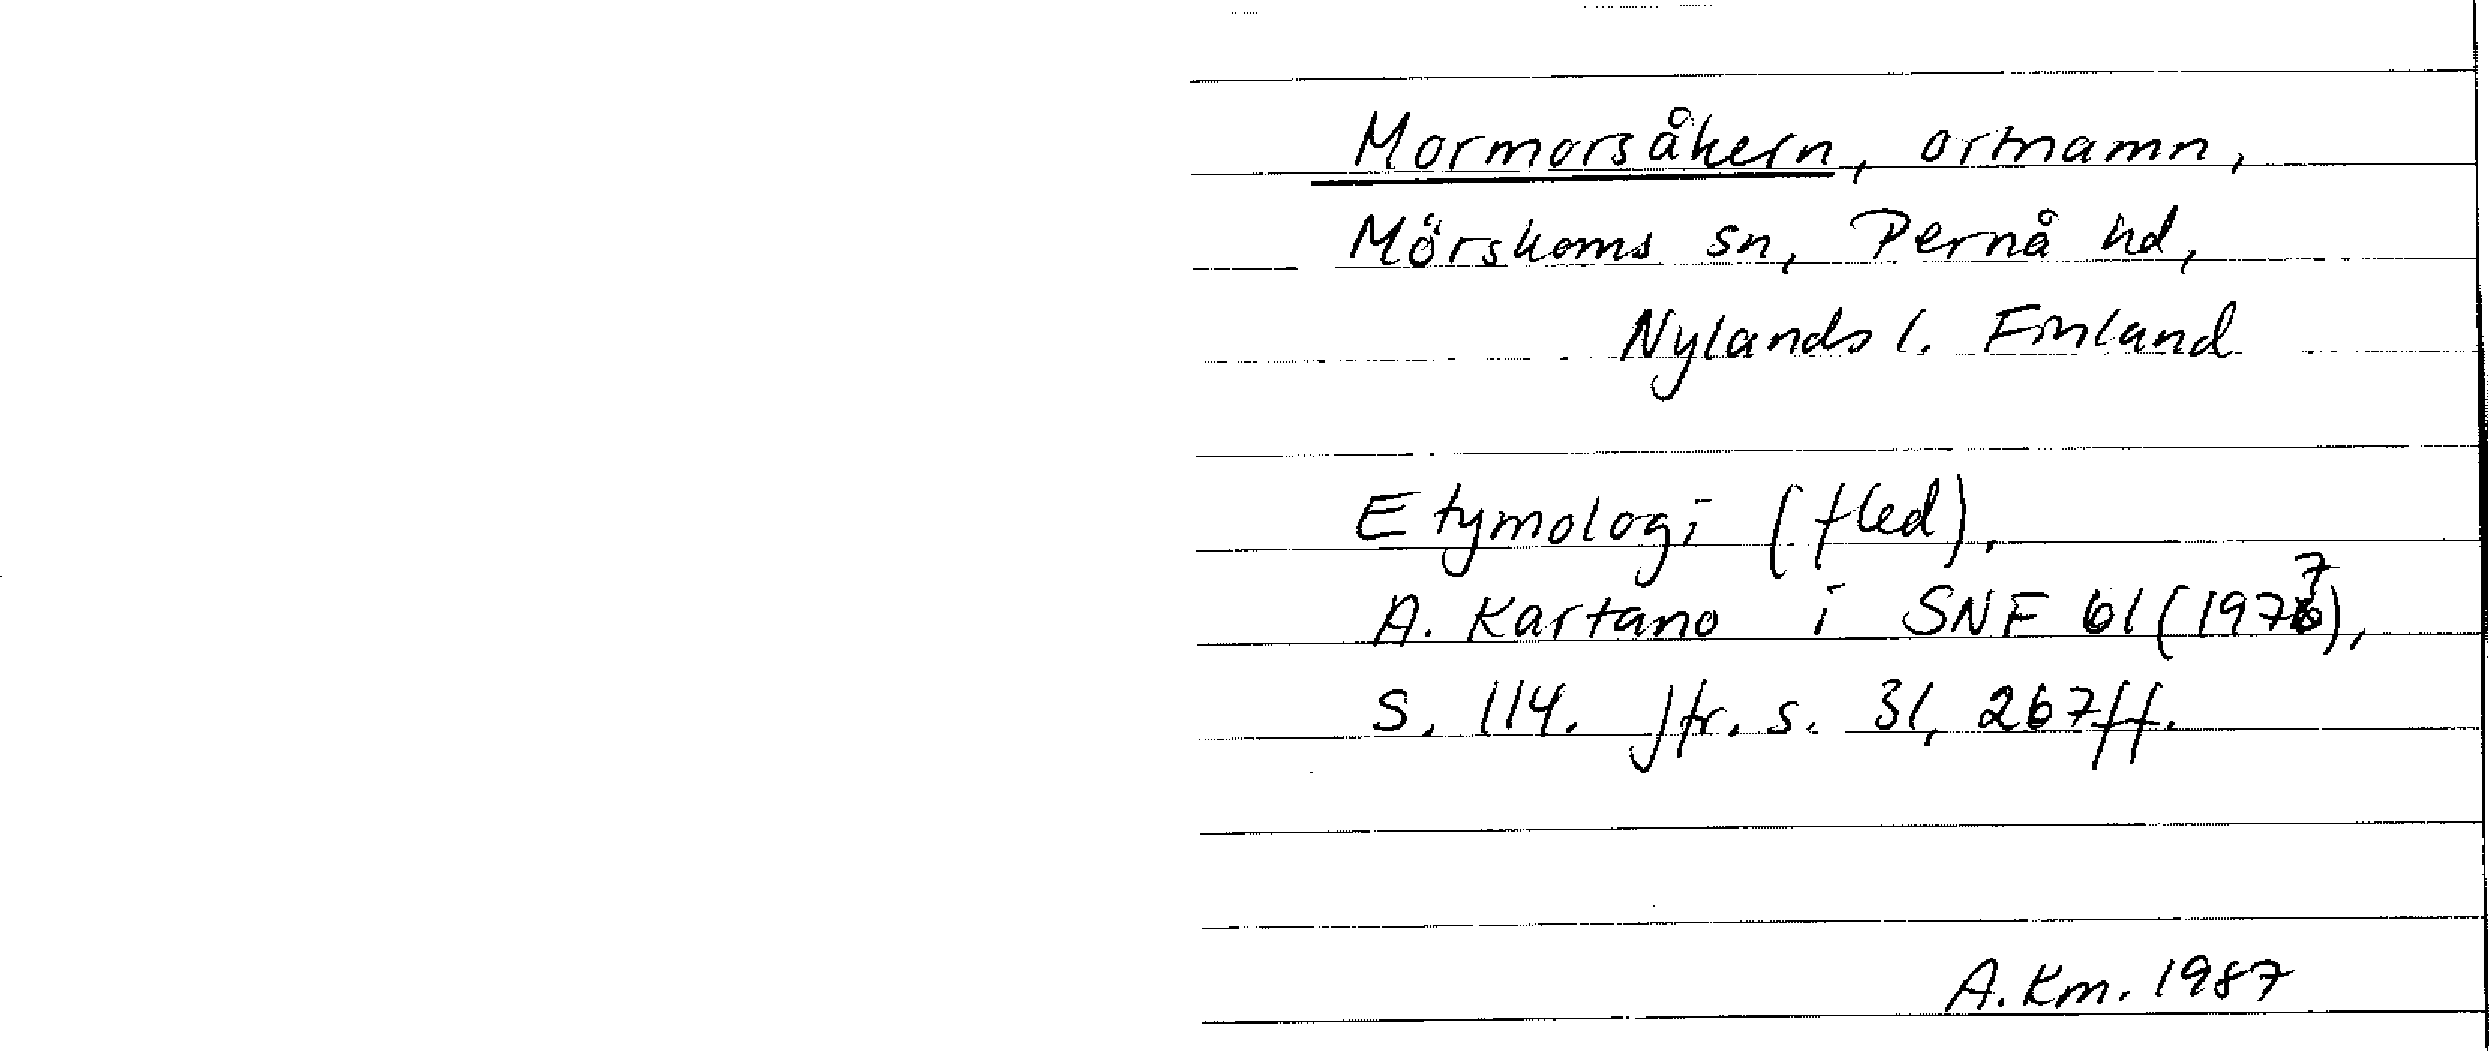 Mormorsåkern, ortnamn,
Mörskoms sn, Pernå hd,
Nylands l. Finland
Etymologi (fled).
A. Kartano i SNF 61 (1977),
s. 114. Jfr. s. 31, 267ff.
A. Km. 1987